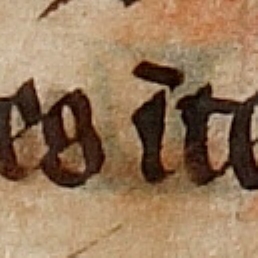 es ite